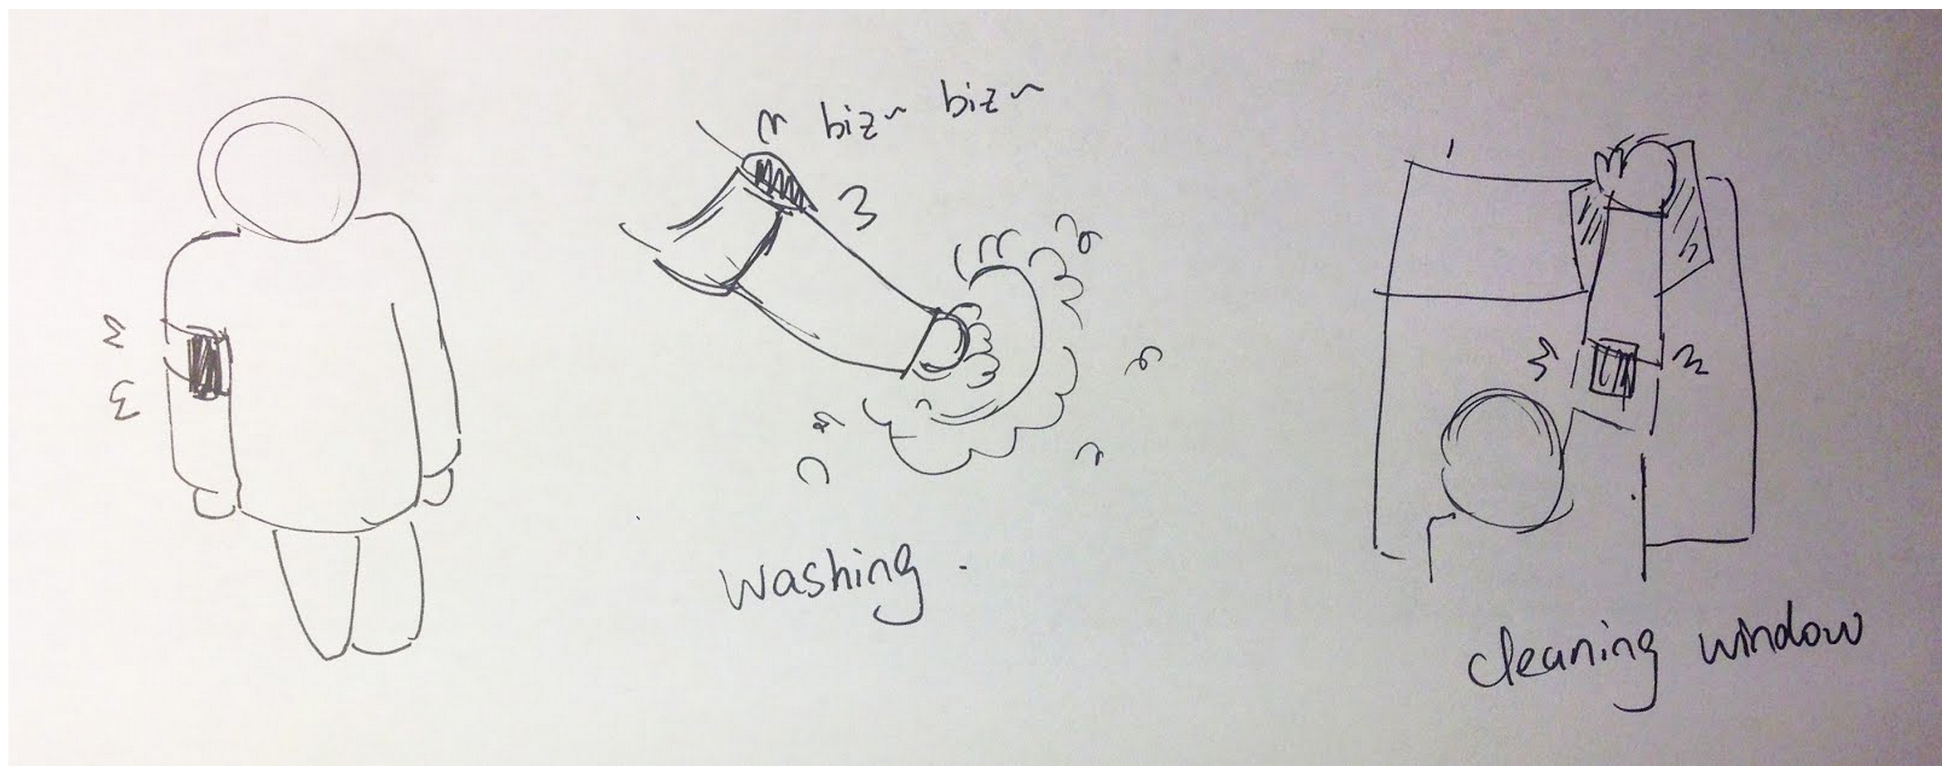 biz~ biz~
washing.
cleaning window